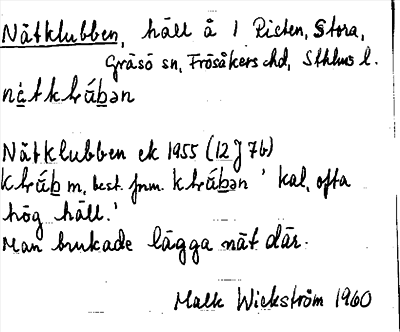 Nätklubben, häll å 1 Risten, Stora,
Gräsö sn, Frösåkers hd, Sthlms l.
nä̀tklúb̲ən
Nätklubben ek 1955 (12J7b)
klúb̲ m, best. fnm. klúb̲ən 'kal, ofta
hög häll.'
Man brukade lägga nät där.
Maik Wickström 1960